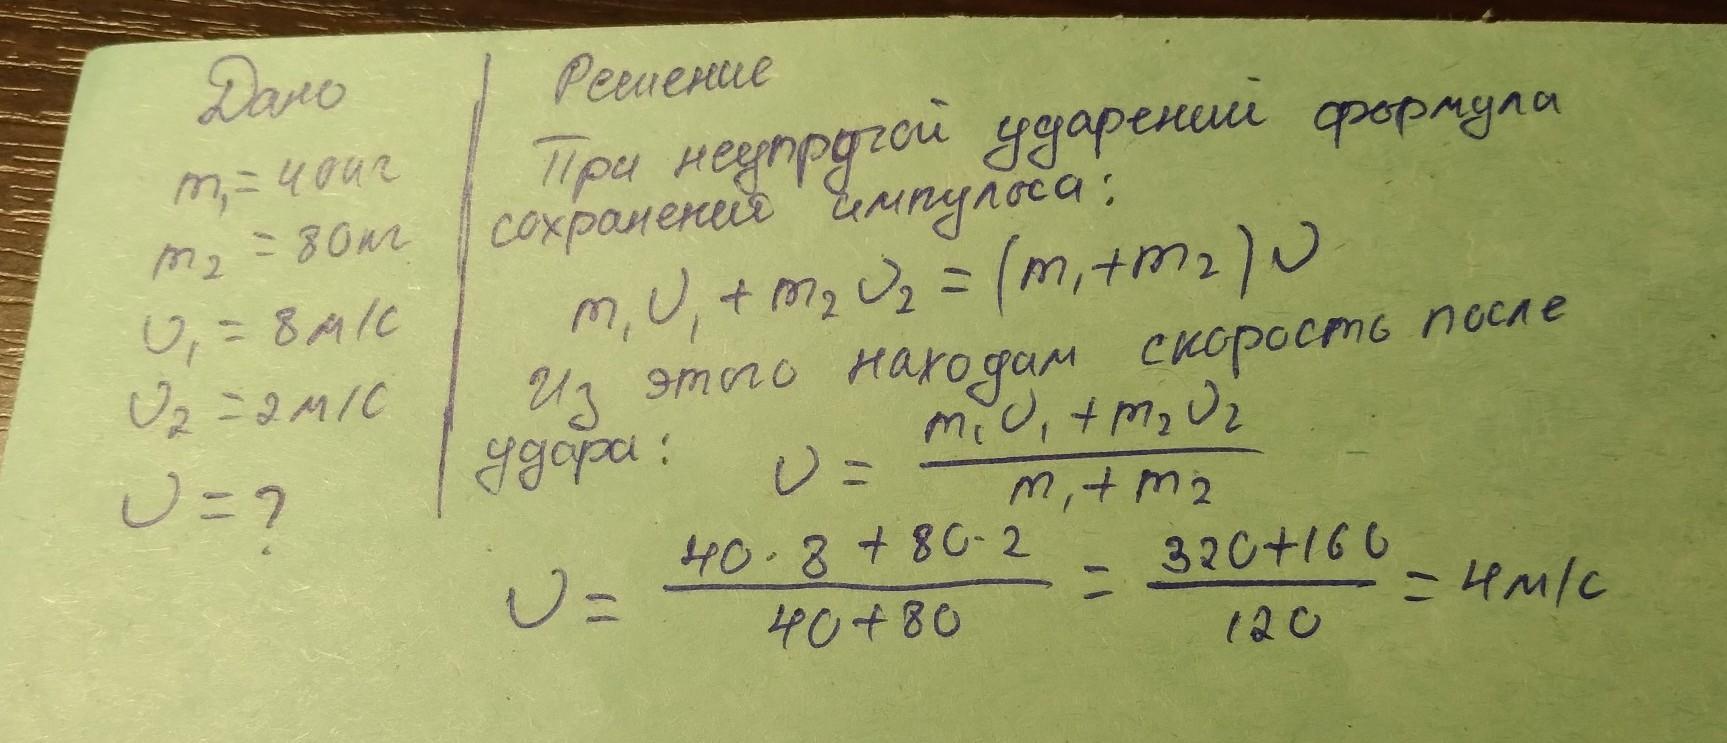 Дано
m₁ = 40кг
m₂ = 80кг
υ₁ = 8м/с
υ₂ = 2м/с
υ = ?
Решение
При неупругой ударений формула
сохранений импульса:
m₁υ₁ + m₂υ₂ = (m₁+m₂)υ
Из этого находам скорость после
удара: υ = (m₁υ₁ + m₂υ₂)/(m₁ + m₂)
υ = (40·8 + 80·2)/(40+80) = (320+160)/120 = 4м/с